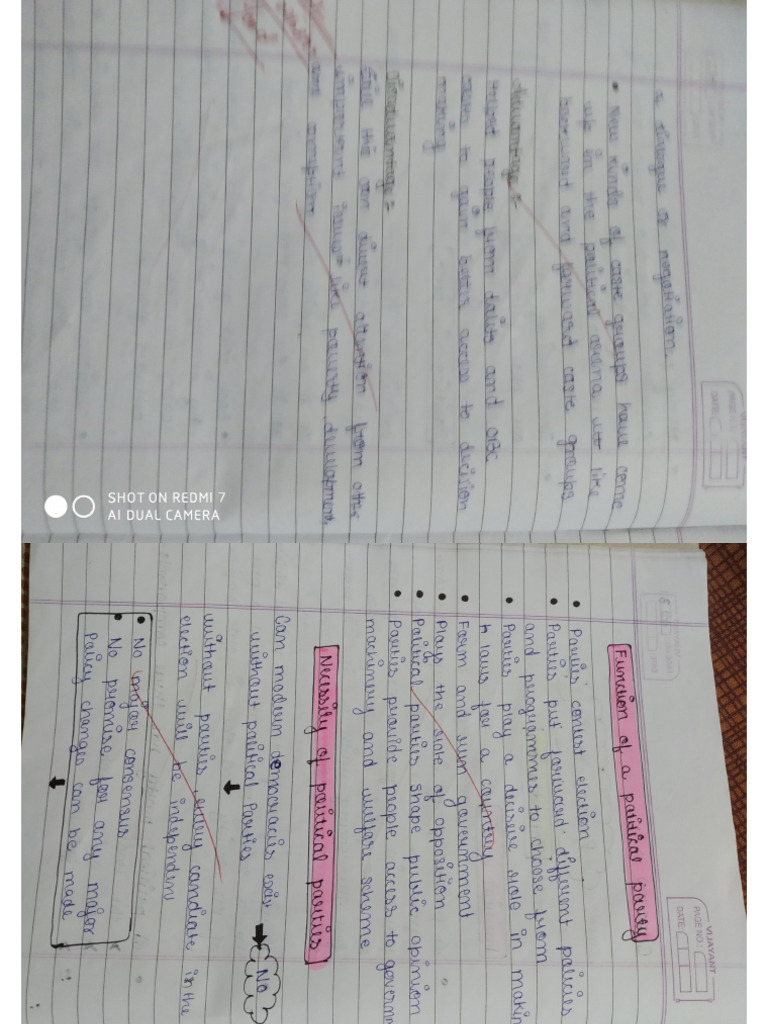 a dialogue or negotiation.
• New kinds of caste groups have come
up in the political arena like
backward and forward caste groups
Advantage =
Helped people from dalits and OBC
caste to gain better access to decision
making
Disadvantage =
divert attention from other
important issues like poverty, development,
and corruption
SHOT ON REDMI 7
AI DUAL CAMERA
VIJAYANT
PAGE NO.:
DATE:
Function of a political party
• Parties contest election
• Parties put forward different policies
and programmes to choose from
• Parties play a decisive role in makin
h laws for a country
• Form and run government
• Plays the role of opposition
• Political parties shape public opinion
• Parties provide people access to governm
machinery and welfare scheme
Necessity of political parties
Can modern democracies exist
without political Parties
No
without parties, every candiate in the
election will be independent
• No major consensus
• No promise for any major
Policy changes can be made